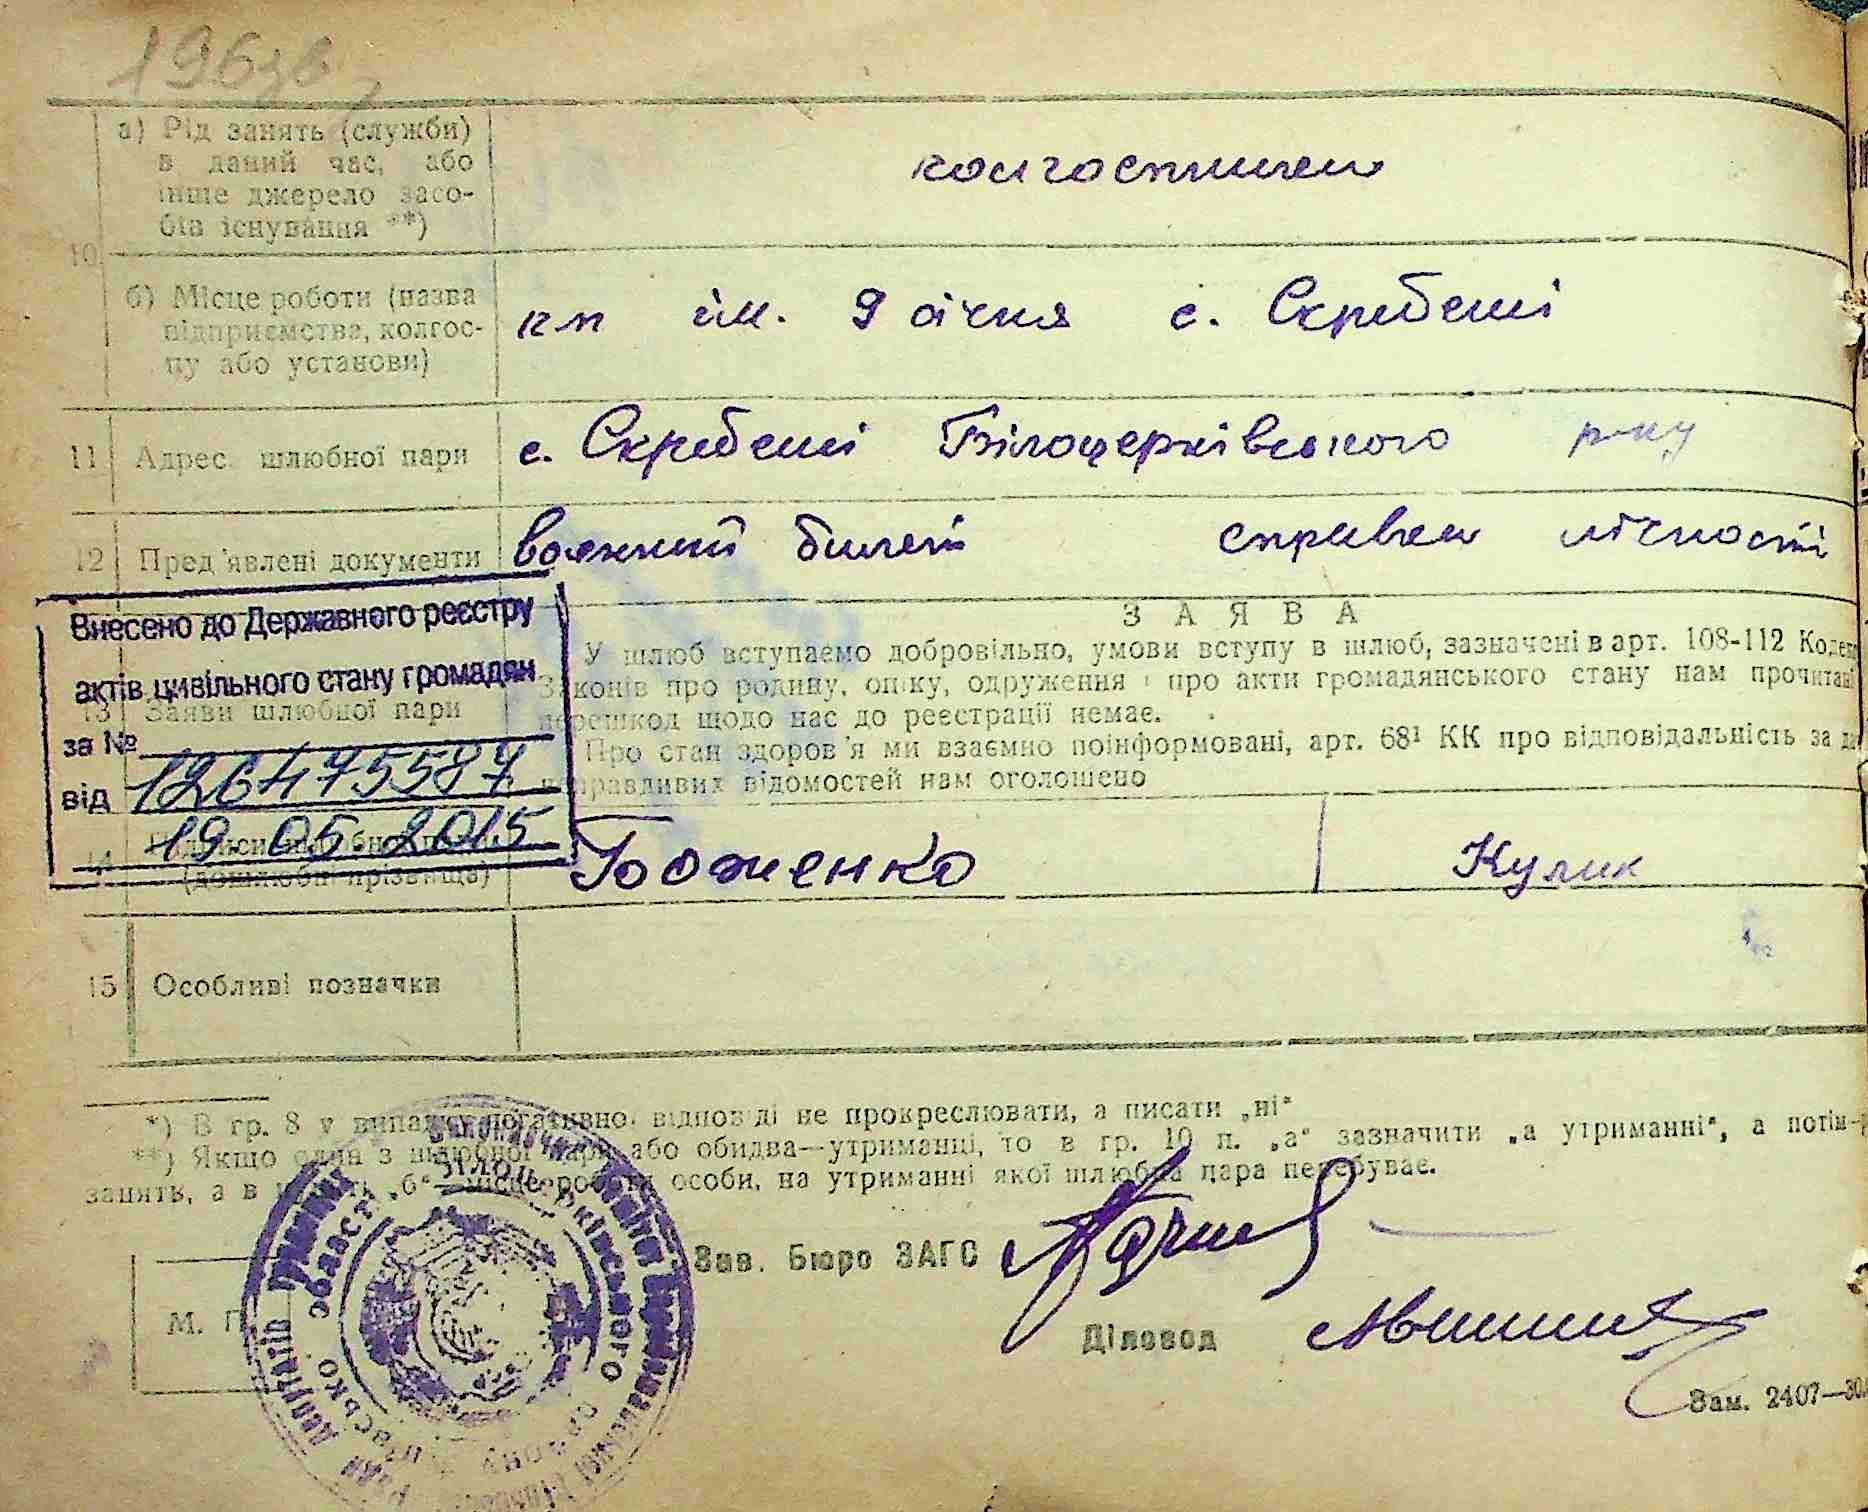 196зв
а) Рід занять (служби)
в даний час, або
інше джерело засо-
бів існування **)
колгоспники
10
б) Місце роботи (назва
підприємства, колгос-
пу або установи)
кп ім. 9 січня с. Скребеші
11 Адрес шлюбної пари с. Скребеші Білоцерківського р-ну
12 Пред'явлені документи воєнний билет справка лічності
Внесено до Державного реєстру
актів цивільного стану громадян
за №
від 126475587
19.05.2015
13 Заяви шлюбної пари
ЗАЯВА
У шлюб вступаємо добровільно, умови вступу в шлюб, зазначені в арт. 108-112 Кодек
Законів про родину, опіку, одруження і про акти громадянського стану нам прочитані
перешкод щодо нас до реєстрації немає.
Про стан здоров'я ми взаємно поінформовані, арт. 68¹ КК про відповідальність за да
неправдивих відомостей нам оголошено
14
(дошлюбні прізвища)
Боженко Кулик
15 Особливі позначки
*) В гр. 8 у випадку негативної відповіді не прокреслювати, а писати „ні“
**) Якщо один з шлюбної пари або обидва—утриманці, то в гр. 10 п. „а“ зазначити „а утриманні“, а потім
занять, а в „б“ місце роботи особи, на утриманні якої шлюбна пара перебуває.
Зав. Бюро ЗАГС
М. П.
Діловод
Зам. 2407—30